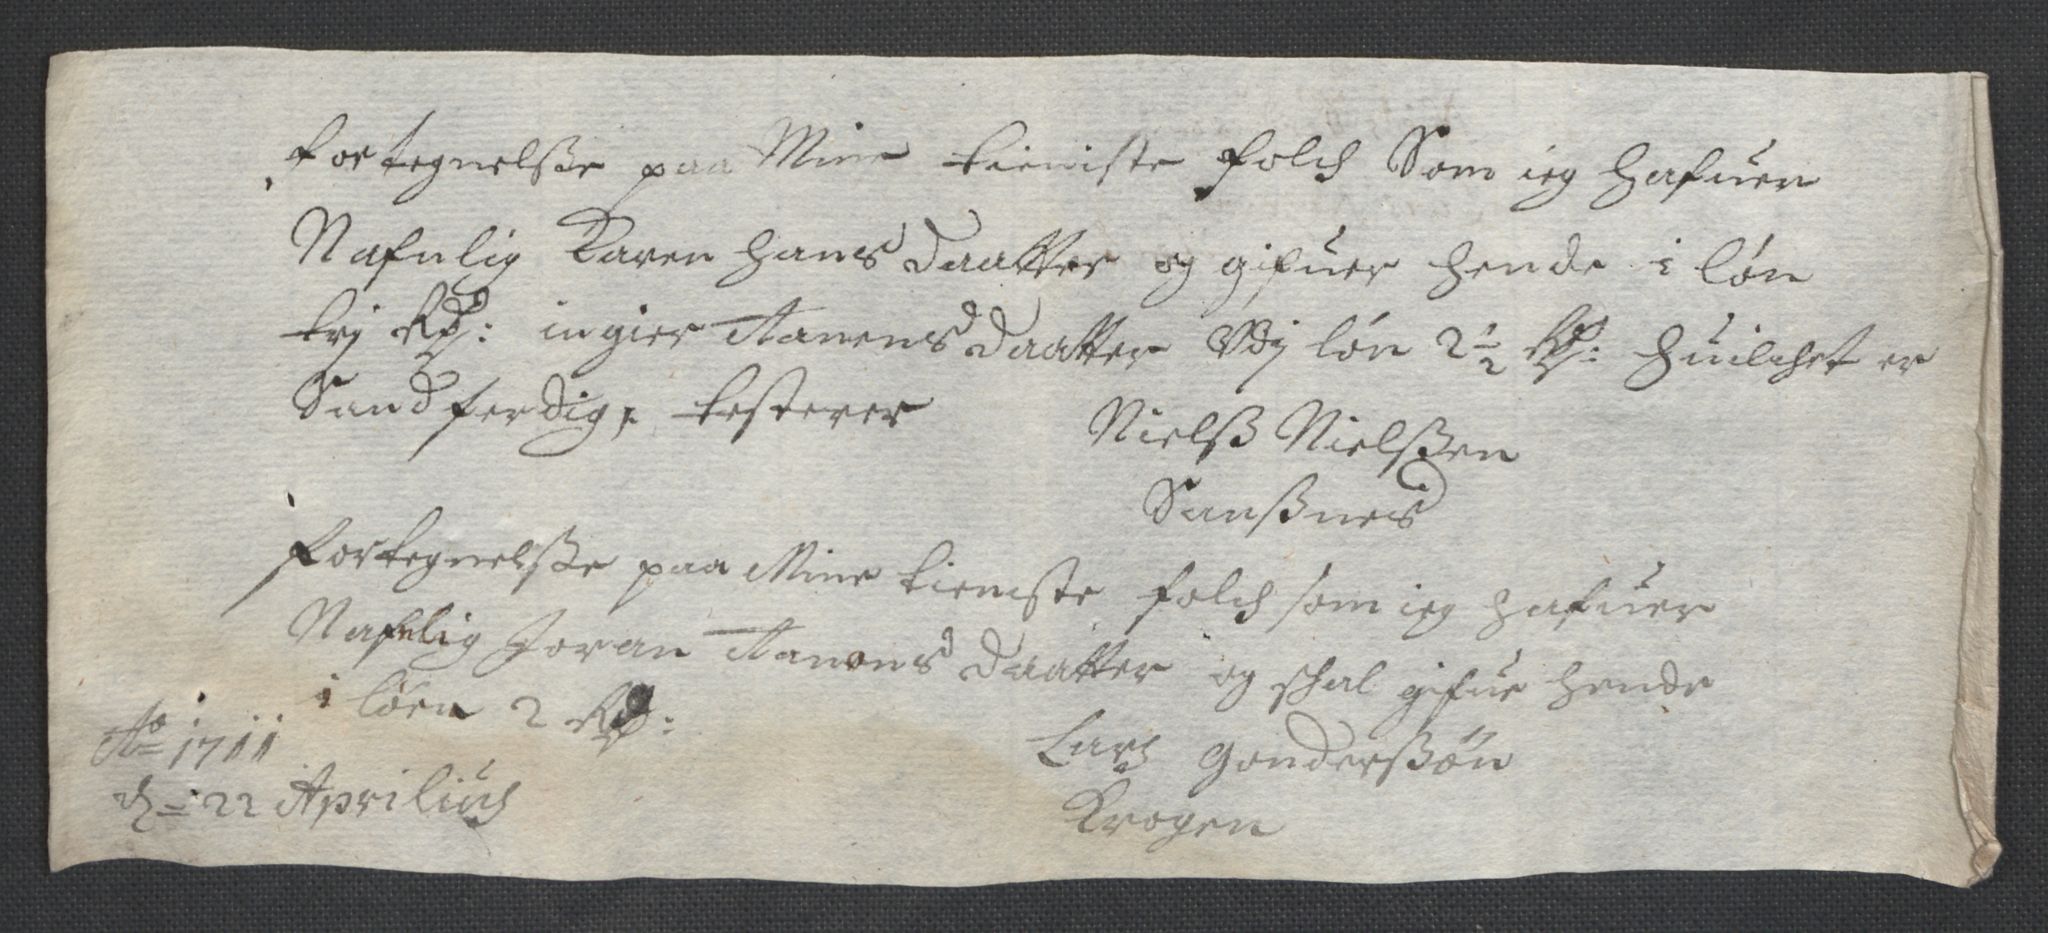 fortegnelsße paa Mine tieniste folch Som ieg hafuer
Nafnlig Karen hans daatter og gifuer hende i løn
try Rd: ingier Aamens daatter Vdj løn 2½ Rd: huilchet er
Sandferdig, testerer
Nielß Nielßen
Sanßnes
fortegnelsße paa Mine tieniste folch som ieg hafuer
Nafnlig Joran Aamons daatter og schal gifue hende
i løen 2 Rd:
Larß Gonderßøn
Krogen
Ao 1711
d= 22 Aprilius